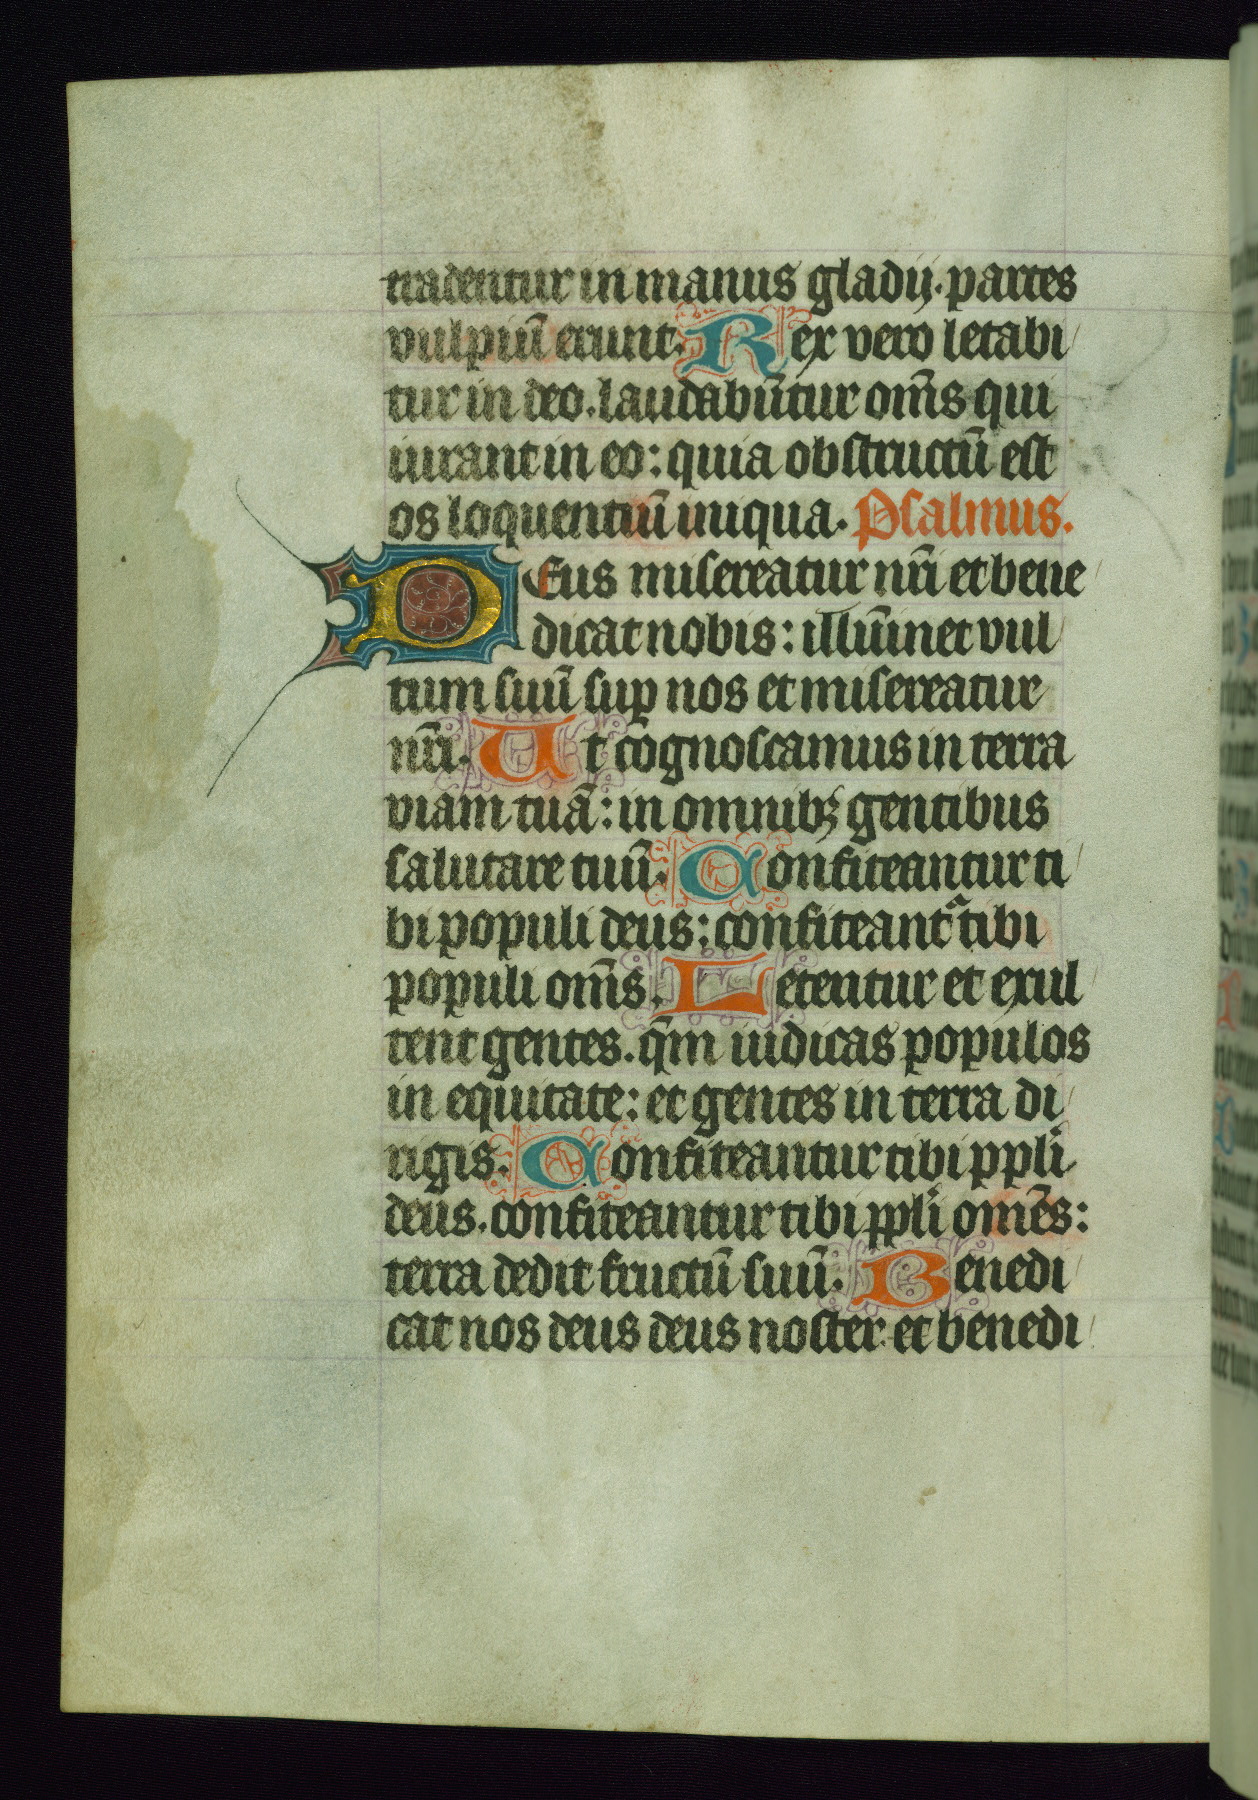 tradentur in manus gladij. partes
vulpiū erunt. Rex vero letabi
tur in deo. laudabūtur om̄s qui
iurant in eo: quia obstructū est
os loquentiū iniqua. Psalmus.
Deus misereatur nr̄i et bene
dicat nobis: illūinet vul
tum suū suꝑ nos et misereatur
nr̄i. Ut cognoscamus in terra
viam tuā: in omnibꝫ gentibus
salutare tuū. Confiteantur ti
bi populi deus: confiteantᷣ tibi
populi om̄s. Letentur et exul
tent gentes. qm̄ iudicas populos
in equitate: et gentes in terra di
rigis. Confiteantur tibi ppli
deus. confiteantur tibi ppli omēs:
terra dedit fructū suū. Benedi
cat nos deus deus noster et benedi